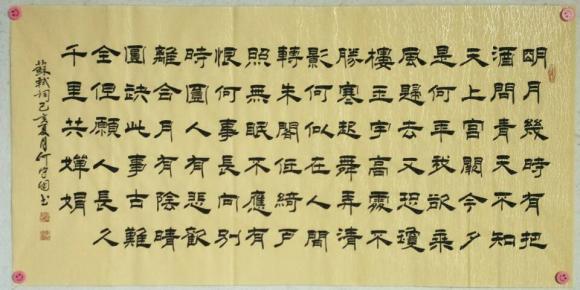 明月幾時有把
酒問青天不知
天上宮闕今夕
是何年我欲乘
風歸去又恐瓊
樓玉宇高處不
勝寒起舞弄清
影何似在人間
轉朱閣低綺戶
照無眠不應有
恨何事長向別
時圓人有悲歡
離合月有陰晴
圓缺此事古難
全但願人長久
千里共嬋娟
蘇軾詞己亥夏月